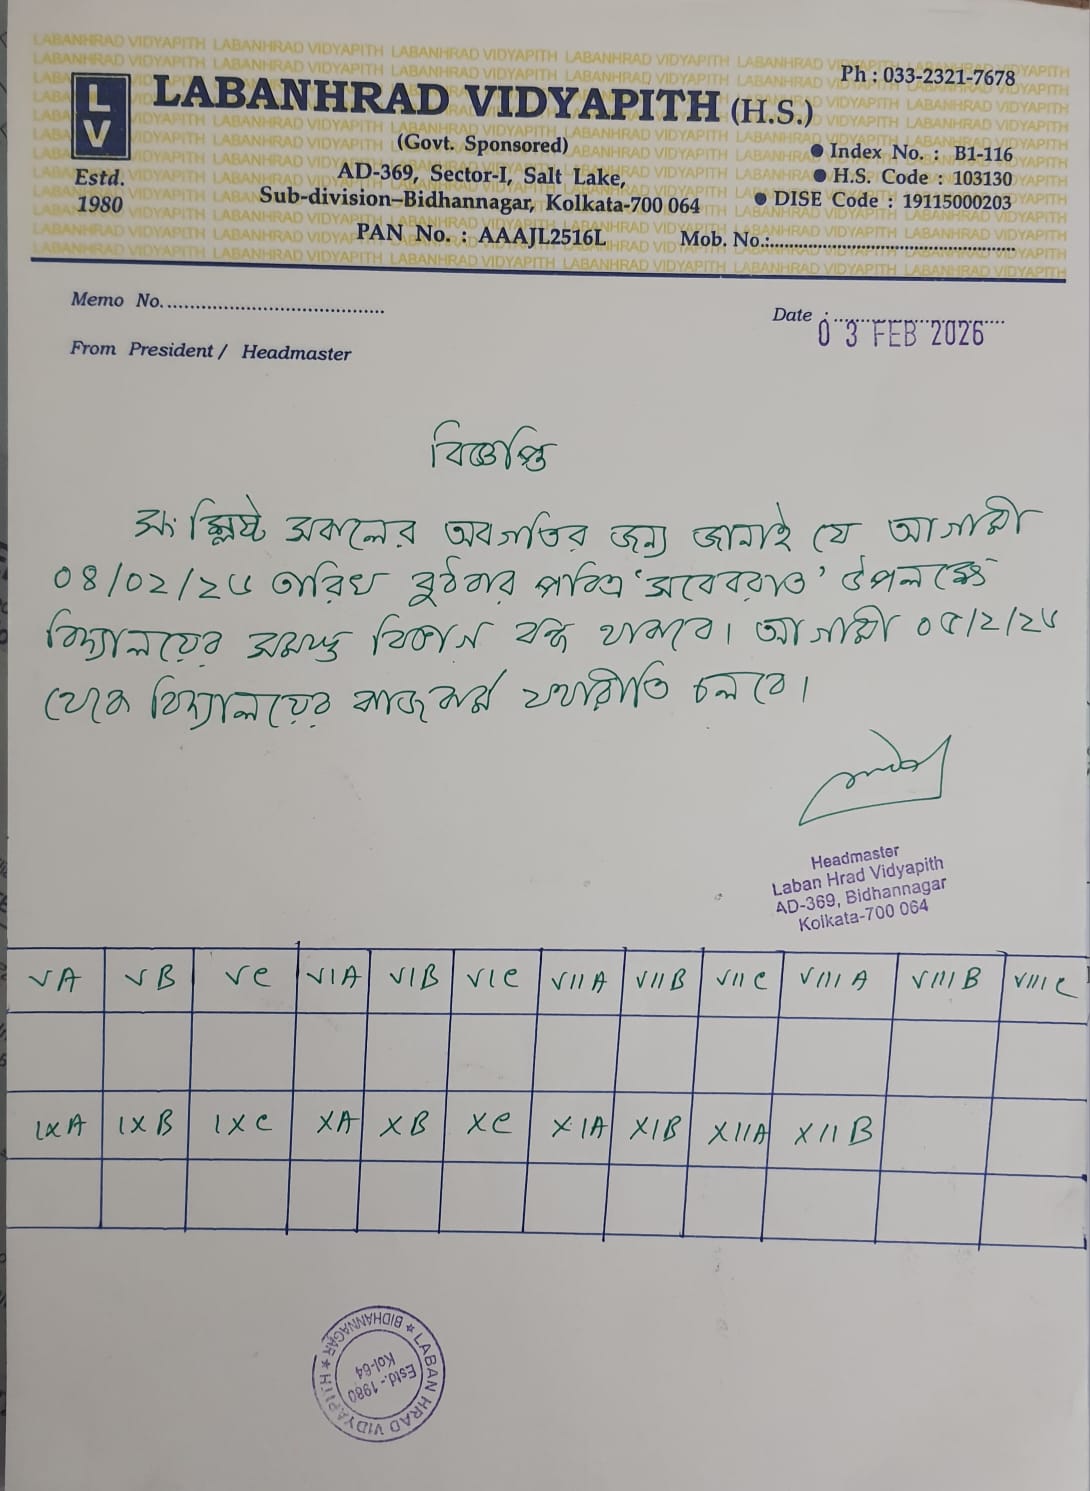 LABANHRAD VIDYAPITH (H.S.)
Ph : 033-2321-7678
LV
Estd.
1980
(Govt. Sponsored)
AD-369, Sector-I, Salt Lake,
Sub-division–Bidhannagar, Kolkata-700 064
PAN No. : AAAJL2516L
● Index No. : B1-116
● H.S. Code : 103130
● DISE Code : 19115000203
Mob. No.:
Memo No.
Date :
03 FEB 2026
From President / Headmaster
বিজ্ঞপ্তি
সংশ্লিষ্ট সকলের অবগতির জন্য জানাই যে আগামী
০৪/০২/২৬ তারিখ বুধবার পবিত্র 'সবেবরাত' উপলক্ষে
বিদ্যালয়ের সমস্ত বিভাগ বন্ধ থাকবে। আগামী ০৫/২/২৬
থেকে বিদ্যালয়ের কাজকর্ম যথারীতি চলবে।
Headmaster
Laban Hrad Vidyapith
AD-369, Bidhannagar
Kolkata-700 064
VA VB VC VIA VIB VIC VIIA VIIB VIIC VIIIA VIIIB VIIIC
IXA IXB IXC XA XB XC XIA XIB XIIA XIIB
LABAN HRAD VIDYAPITH * BIDHANNAGAR *
Estd.- 1980
Kol-64